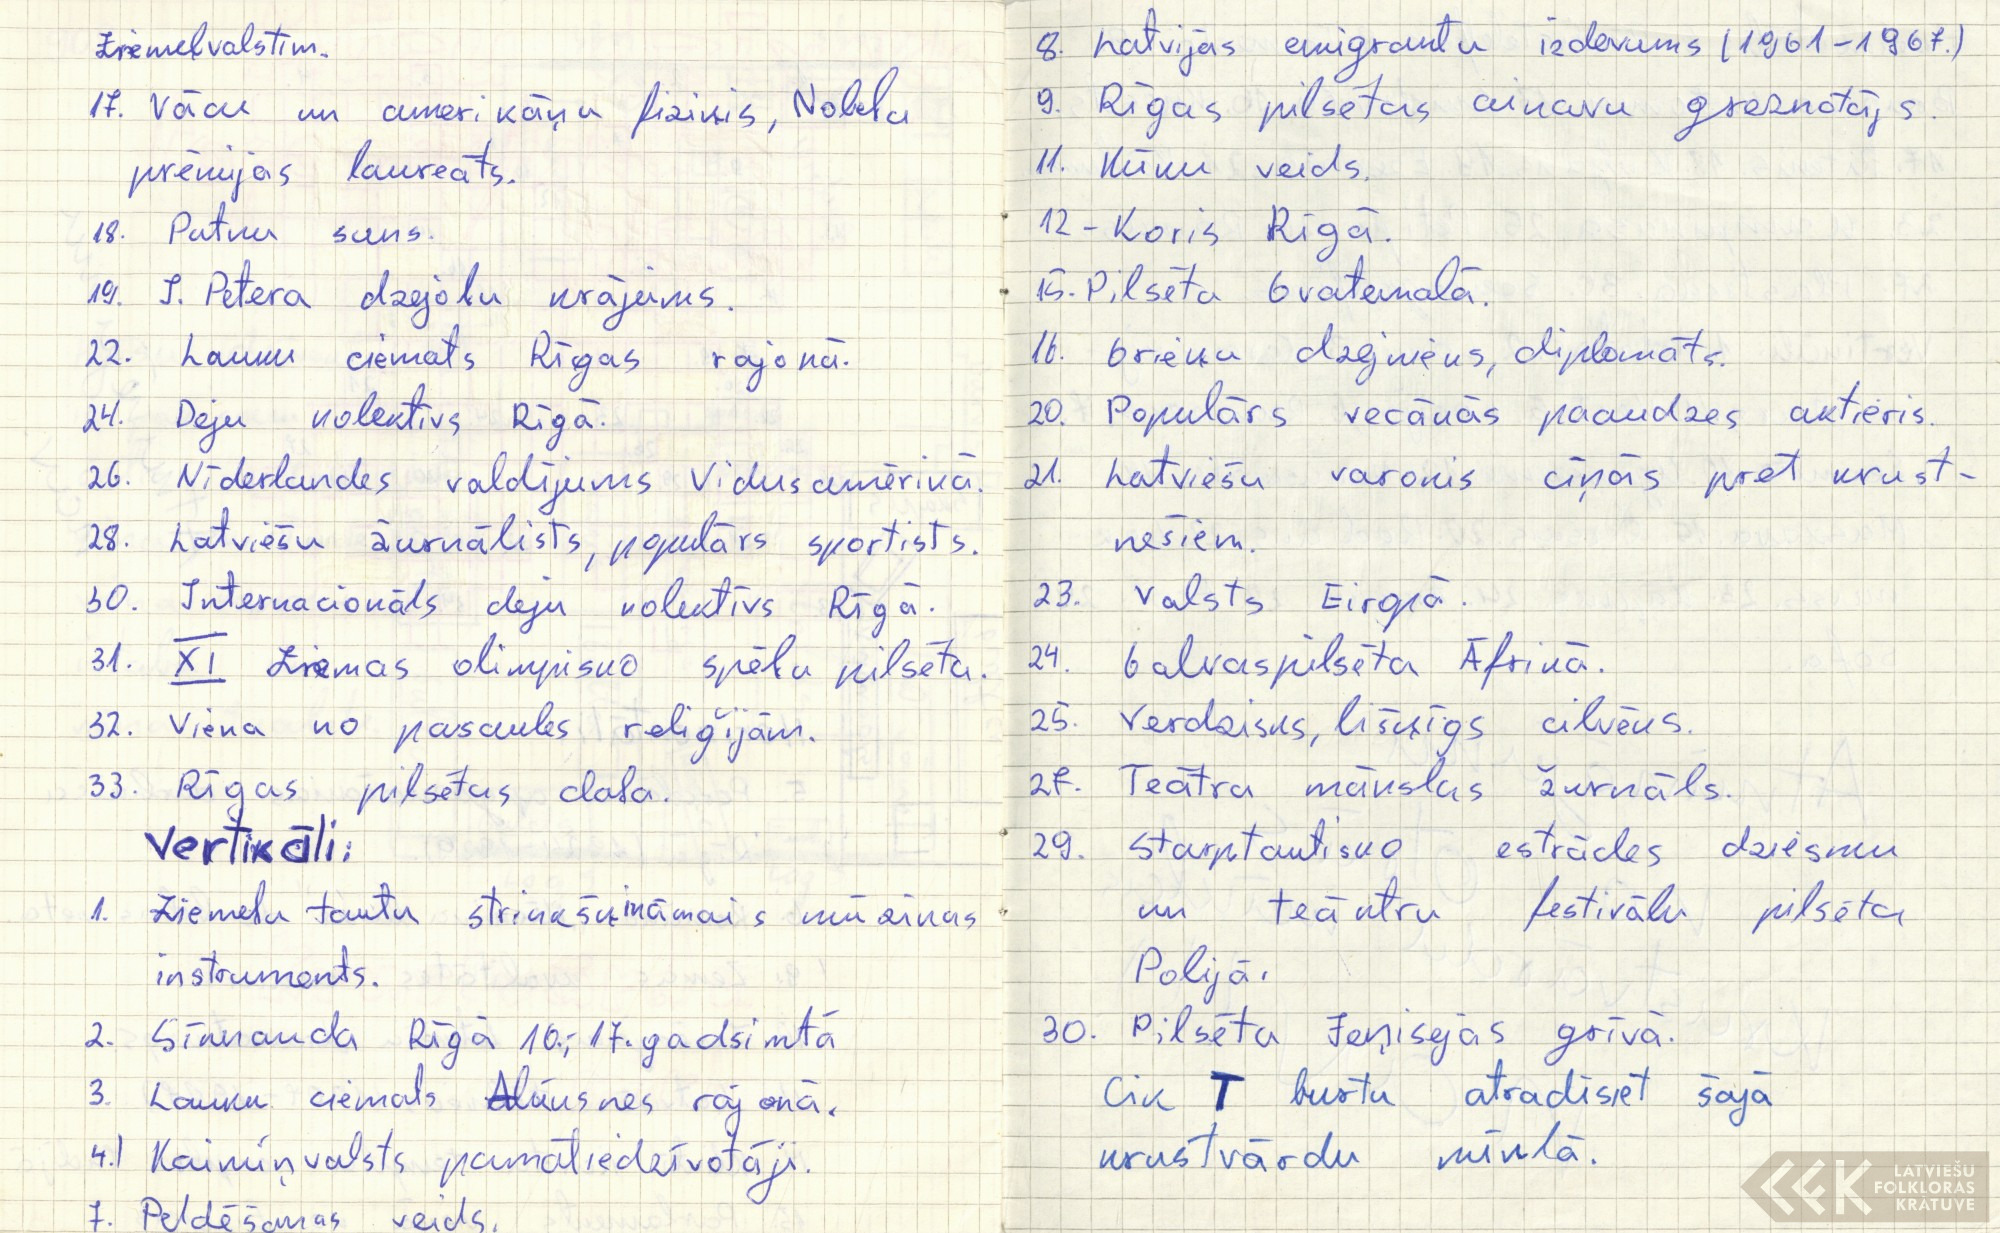 Ziemeļvalstīm.
17. Vācu un amerikāņu fiziķis, Nobela
prēmijas laureāts.
18. Putnu suns.
19. J. Petera dzejoļu krājums.
22. Lauku ciemats Rīgas rajonā.
24. Deju kolektīvs Rīgā.
26. Nīderlandes valdījums Vidusamērikā.
28. Latviešu žurnālists, populārs sportists.
30. Internacionāls deju kolektīvs Rīgā.
31. XI Ziemas olimpisko spēļu pilsēta.
32. Viena no pasaules reliģijām.
33. Rīgas pilsētas daļa.
Vertikāli:
1. Ziemeļu tautu strinkšķināmais mūzikas
instruments.
2. Sīknauda Rīgā 16.; 17. gadsimtā
3. Lauku ciemats Alūksnes rajonā.
4. Kaimiņvalsts pamatiedzīvotāji.
7. Peldēšanas veids.
8. Latvijas emigrantu izdevums (1961-1967.)
9. Rīgas pilsētas ainavu greznotājs.
11. Kūku veids.
12 - Koris Rīgā.
15. Pilsēta Gvatemalā.
16. Grieķu dzejnieks, diplomāts.
20. Populārs vecākās paaudzes aktieris.
21. Latviešu varonis cīņās pret krust-
nešiem.
23. Valsts Eiropā.
24. Galvaspilsēta Āfrikā.
25. Verdzisks, lišķīgs cilvēks.
27. Teātra mākslas žurnāls.
29. Starptautisko estrādes dziesmu
un teāktru festivālu pilsēta
Polijā.
30. Pilsēta Jeņisejas grīvā.
Cik T burtu atradīsiet šajā
krustvārdu mīklā.
LATVIEŠU
FOLKLORAS
KRĀTUVE